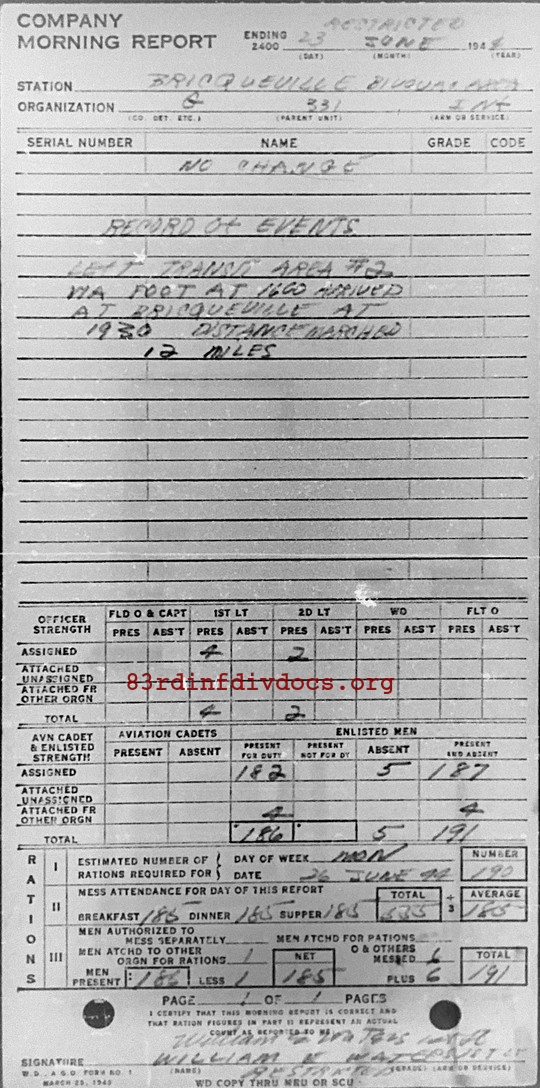 COMPANY
MORNING REPORT
RESTRICTED
ENDING 2400 23 JUNE 1944
(DAY) (MONTH) (YEAR)
STATION BRICQUEVILLE BIVOUAC AREA
ORGANIZATION G 331 INF
(CO. DET. ETC.) (PARENT UNIT) (ARM OR SERVICE)
SERIAL NUMBER NAME GRADE CODE
NO CHANGE
RECORD OF EVENTS
LEFT TRANSIT AREA #2
VIA FOOT AT 1600 ARRIVED
AT BRICQUEVILLE AT
1930 DISTANCE MARCHED
12 MILES
OFFICER STRENGTH FLD O & CAPT 1ST LT 2D LT WO FLT O
PRES ABS'T PRES ABS'T PRES ABS'T PRES ABS'T PRES ABS'T
ASSIGNED 4 2
ATTACHED UNASSIGNED
ATTACHED FR OTHER ORGN
TOTAL 4 2
83rdinfdivdocs.org
AVN CADET & ENLISTED STRENGTH AVIATION CADETS ENLISTED MEN
PRESENT ABSENT PRESENT FOR DUTY PRESENT NOT FOR DY ABSENT PRESENT AND ABSENT
ASSIGNED 182 5 187
ATTACHED UNASSIGNED
ATTACHED FR OTHER ORGN 4 4
TOTAL 186 5 191
RATIONS
I ESTIMATED NUMBER OF RATIONS REQUIRED FOR DAY OF WEEK MON NUMBER
DATE 26 JUNE 44 190
II MESS ATTENDANCE FOR DAY OF THIS REPORT TOTAL ÷ 3 AVERAGE
BREAKFAST 185 DINNER 185 SUPPER 185 555 185
III MEN AUTHORIZED TO MESS SEPARATELY MEN ATCHD FOR RATIONS
MEN ATCHD TO OTHER ORGN FOR RATIONS 1 NET O & OTHERS MESSED 6 TOTAL
MEN PRESENT 186 LESS 1 185 PLUS 6 191
PAGE 1 OF 1 PAGES
I CERTIFY THAT THIS MORNING REPORT IS CORRECT AND
THAT RATION FIGURES IN PART II REPRESENT AN ACTUAL
COUNT AS REPORTED TO ME
William E Waters 1st Lt
SIGNATURE WILLIAM E WATERS 1ST LT
(NAME) (GRADE) (ARM OR SERVICE)
RESTRICTED
W.D., A.G.O. FORM NO. 1
MARCH 25, 1943
WD COPY THRU MRU OR SCU